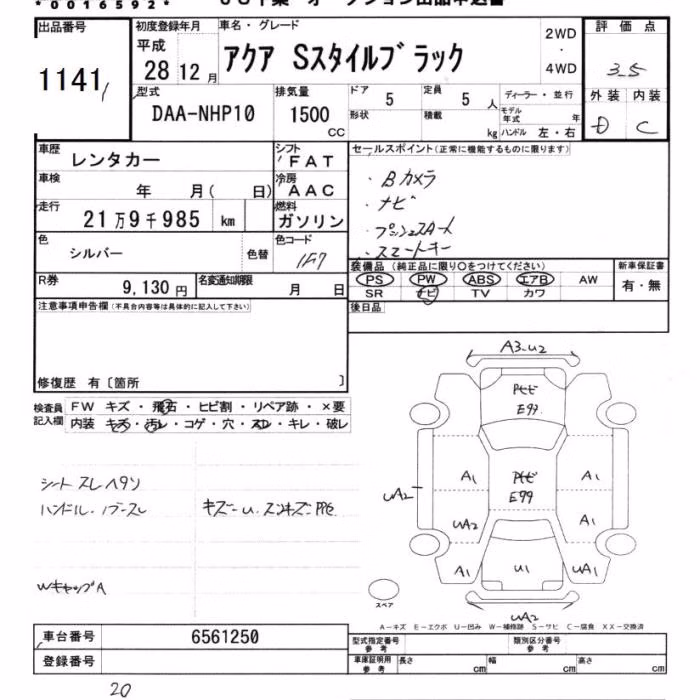 *0016592*
出品番号
1141
初度登録年月
平成
28 12 月
車名・グレード
アクア Sスタイルブラック
2WD
・
4WD
評価点
3.5
外装 内装
D C
型式
DAA-NHP10
排気量
1500
CC
ドア 5
形状
定員 5 人
積載 kg
ディーラー・並行
モデル年式 年
ハンドル 左・右
車歴
レンタカー
シフト
FAT
車検
年 月( 日)
冷房
AAC
走行
21万9千985 km
燃料
ガソリン
色
シルバー
色替
色コード
1F7
R券
9,130 円
名変通知期限
月 日
セールスポイント(正常に機能するものに限ります)
・Bカメラ
・ナビ
・プッシュスタート
・スマートキー
装備品(純正品に限り○をつけてください)
PS PW ABS エアB AW
SR ナビ TV カワ
新車保証書
有・無
後日品
注意事項申告欄(不具合内容等は具体的に記入して下さい)
修復歴 有〔箇所 〕
検査員
記入欄
FW キズ・飛石・ヒビ割・リペア跡・×要
内装 キズ・汚レ・コゲ・穴・スレ・キレ・破レ
シートスレヘタリ
WキャップA
A3.U2
E99
E99
A1
A1
UA2
UA2
A1
A1
U1
UA1
UA2
スペア
A-キズ E-エクボ U-凹み W-補修跡 S-サビ C-腐食 XX-交換済
車台番号
6561250
登録番号
型式指定番号
参考
類別区分番号
参考
車庫証明用
参考
長さ cm
幅 cm
高さ cm
20